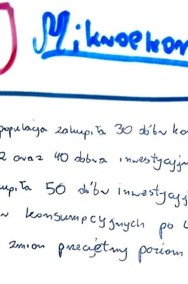 Mikroekon
populacja zakupiła 30 dóbr ko
2 oraz 40 dobra inwestycyjn
upiła 50 dóbr inwestycyj
konsumpcyjnych po
zmian przeciętny poziom